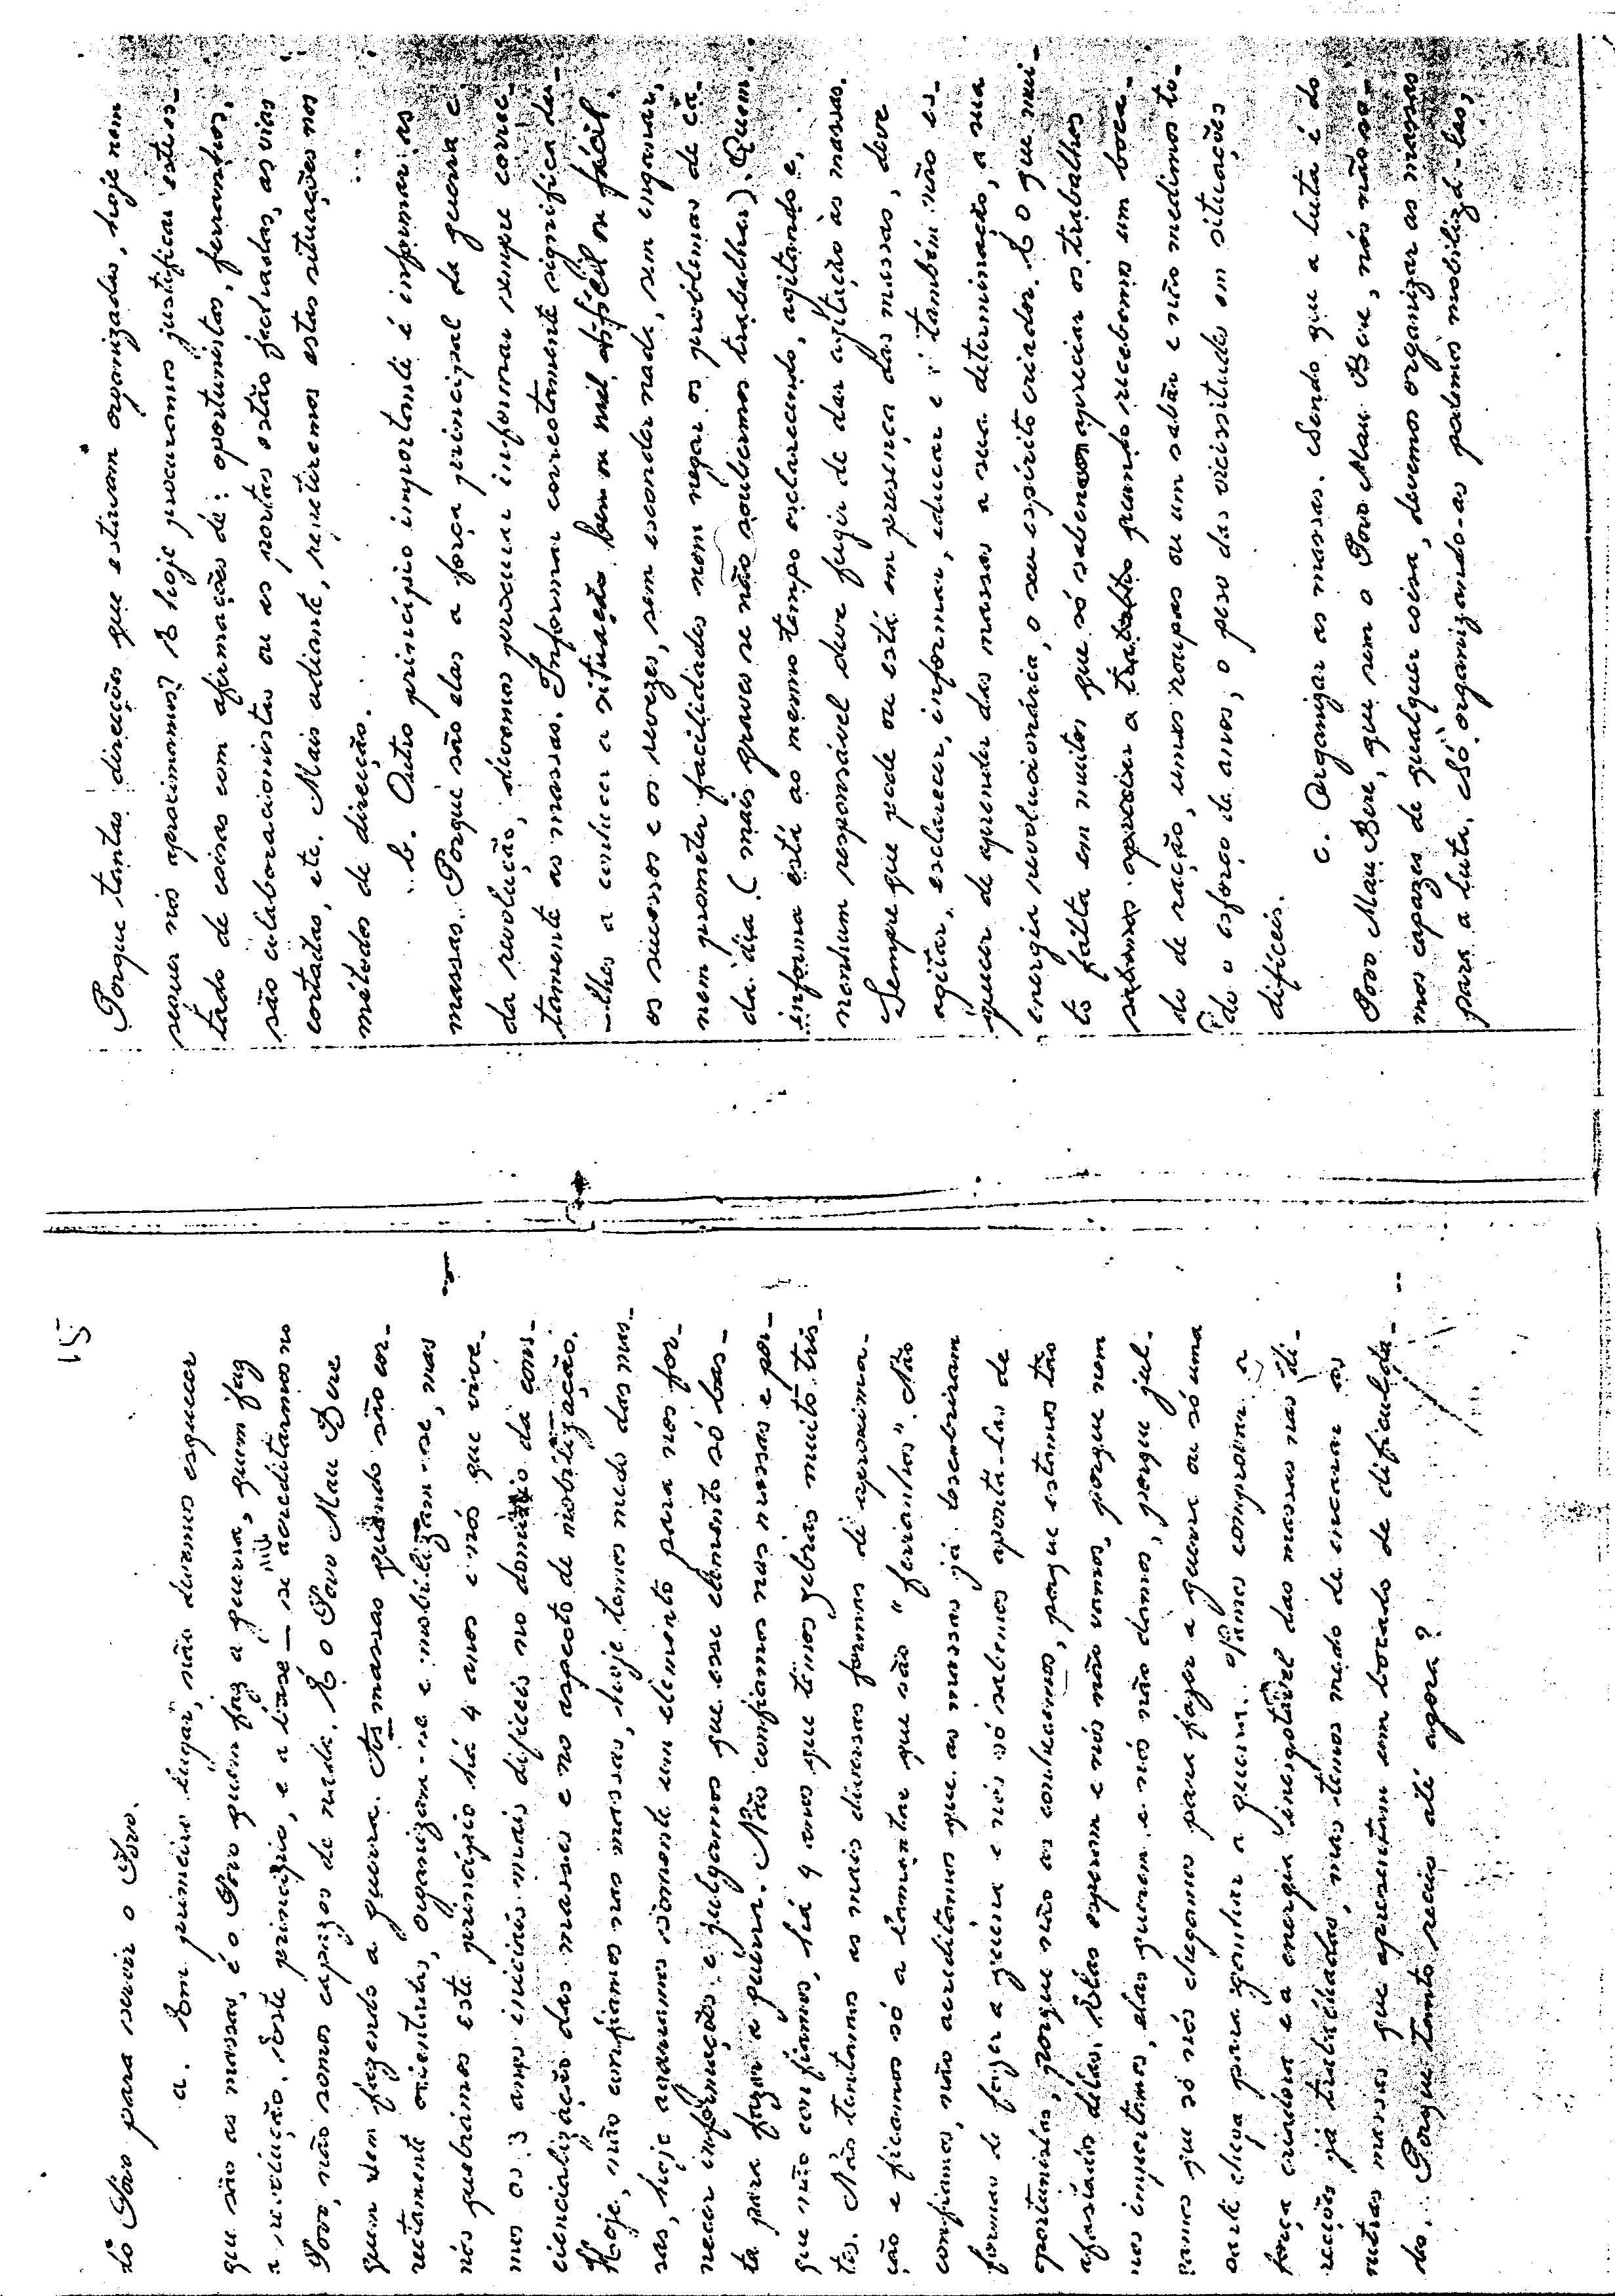 15
do Povo para servir o Povo.
a. Em primeiro lugar, não devemos esquecer
que são as massas, é o Povo quem faz a guerra, quem faz
a revolução. Este princípio, e a base — se acreditarmos no
Povo, não somos capazes de nada. É o Povo Mau Bere
quem vem fazendo a guerra. As massas quando são cor-
rectamente orientadas, organizam-se e mobilizam-se, mas
nós quebrámos este princípio há 4 anos e nós que vive-
mos os 3 anos iniciais mais difíceis no domínio da cons-
ciencialização das massas e no aspecto de mobilização.
Hoje, não confiamos nas massas, hoje temos medo das mas-
sas, hoje agarramos sòmente um elemento para nos for-
necer informações e julgamos que esse elemento só bas-
ta para fazer a guerra. Não confiamos nas massas e por-
que não confiamos, há 4 anos que temos gebras muito tris-
tes. Não tentamos as mais diversas formas de aproxima-
ção e ficamos só a lamentar que são "ferrantes". Não
confiamos, não acreditamos que as massas já descobriram
formas de fazer a guerra e nós só sabemos apontá-las de
oportunistas, porque não as conhecemos, porque estamos tão
afastados delas. Elas esperam e nós não vamos, porque nem
nos importamos, elas querem e nós não damos, porque jul-
gamos que só nós chegamos para fazer a guerra ou só uma
parte chega para ganhar a guerra. Vamos comprovar a
força criadora e a energia inesgotável das massas nas di-
recções já trabalhadas, mas temos medo de encarar as
outras massas que apresentam um bocado de dificulda-
de. Porque tanto receio até agora?
Porque tantas direcções que estavam organizadas, hoje nem
sequer nós aproximamos? E hoje procuramos justificar este es-
tado de coisas com afirmações de: oportunistas, ferrantes,
são colaboracionistas ou as portas estão fechadas, as vias
cortadas, etc. Mais adiante, repetiremos estas situações nos
métodos de direcção.
b. Outro princípio importante é informar as
massas. Porque são elas a força principal da guerra e
da revolução, devemos procurar informar sempre correc-
tamente as massas. Informar correctamente significa dar-
-lhes a conhecer a situação bem ou mal, difícil ou fácil,
os sucessos e os revezes, sem esconder nada, sem enganar,
nem prometer facilidades nem negar os problemas de ca-
da dia (mais graves se não soubermos trabalhar). Quem
informa está ao mesmo tempo esclarecendo, agitando e,
nenhum responsável deve fugir de dar agitação às massas.
Sempre que pode ou está em presença das massas, deve
agitar, esclarecer, informar, educar e também não es-
quecer de aprender das massas a sua determinação, a sua
energia revolucionária, o seu espírito criador. É o que mui-
to falta em muitos que só sabemos apreciar os trabalhos
quando recebemos um boca-
do de ração, umas roupas ou um sabão e não medimos to-
do o esforço de anos, o peso das vicissitudes em situações
difíceis.
c. Organizar as massas. Sendo que a luta é do
Povo Mau Bere, que sem o Povo Mau Bere, nós não se-
mos capazes de qualquer coisa, devemos organizar as massas
para a luta. Só organizando-as podemos mobilizá-las,